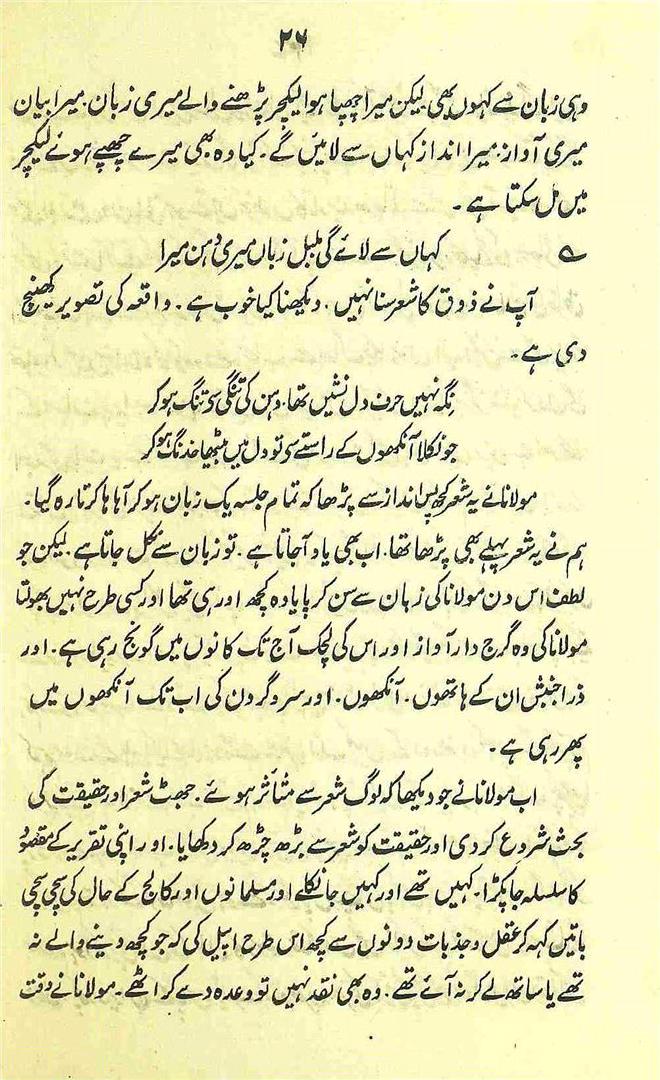 ۲۶
وہی زبان سے کہوں بھی لیکن میرا چھپا ہوا لیکچر پڑھنے والے میری زبان. میرا بیان
میری آواز. میرا انداز کہاں سے لائیں گے. کیا وہ بھی میرے چھپے ہوئے لیکچر
میں مل سکتا ہے.
؎ کہاں سے لائے گی بلبل زباں میری دہن میرا
آپ نے ذوق کا شعر سنا نہیں. دیکھنا کیا خوب ہے. واقعہ کی تصویر کھینچ
دی ہے.
نگہ نہیں حرف دل نشیں تھا. دہن کی تنگی سی تنگ ہو کر
جو نکلا آنکھوں کے راستے سی تو دل میں بیٹھا خدنگ ہو کر
مولانا نے یہ شعر کچھ اس انداز سے پڑھا کہ تمام جلسہ یک زبان ہو کر آہا ہا کرتا رہ گیا.
ہم نے یہ شعر پہلے بھی پڑھا تھا. اب بھی یاد آ جاتا ہے. تو زبان سے نکل جاتا ہے. لیکن جو
لطف اس دن مولانا کی زبان سے سن کر پایا وہ کچھ اور ہی تھا اور کسی طرح نہیں بھولتا
مولانا کی وہ گرج دار آواز اور اس کی لچک آج تک کانوں میں گونج رہی ہے. اور
ذرا جنبش ان کے ہاتھوں. آنکھوں. اور سر و گردن کی اب تک آنکھوں میں
پھر رہی ہے.
اب مولانا نے جو دیکھا کہ لوگ شعر سے متأثر ہوئے. جھٹ شعر اور حقیقت کی
بحث شروع کر دی اور حقیقت کو شعر سے بڑھ چڑھ کر دکھایا. اور اپنی تقریر کے مقصود
کا سلسلہ جا پکڑا. کہیں تھے اور کہیں جا نکلے اور مسلمانوں اور کالج کے حال کی سچی سچی
باتیں کہہ کر عقل و جذبات دونوں سے کچھ اس طرح اپیل کی کہ جو کچھ دینے والے نہ
تھے یا ساتھ لے کر نہ آئے تھے. وہ بھی نقد نہیں تو وعدہ دے کر اٹھے. مولانا نے وقت